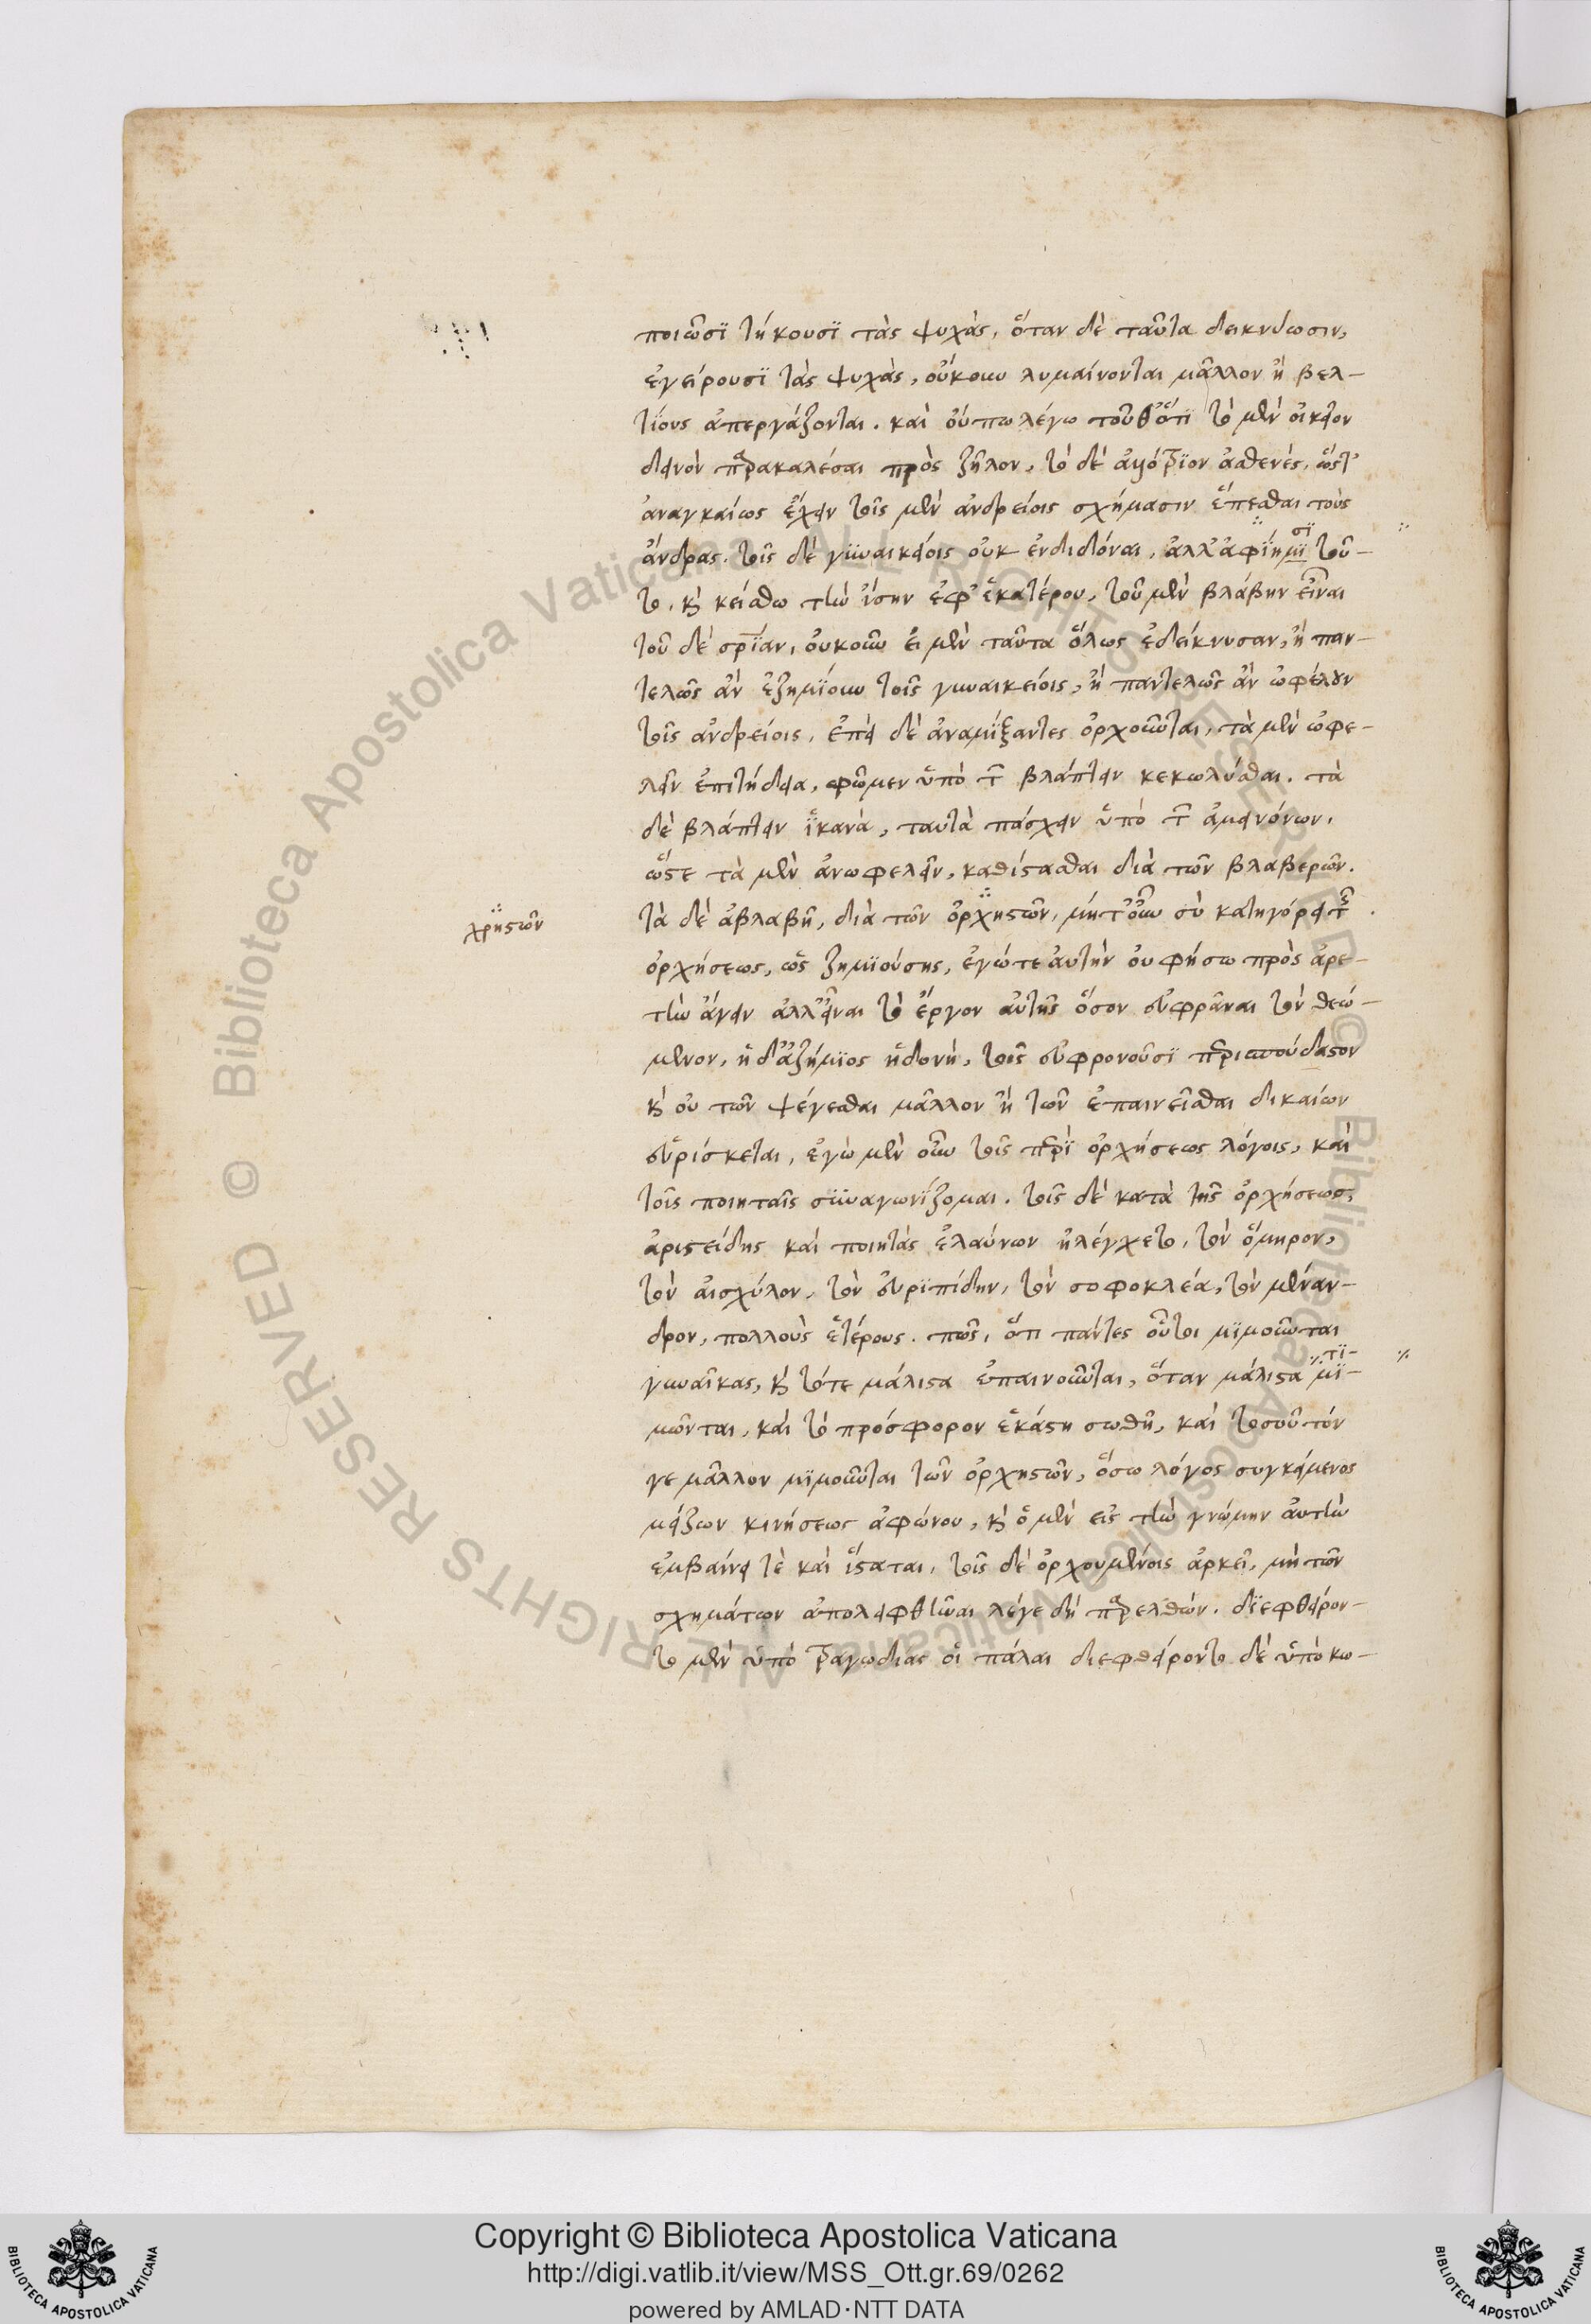 ποιῶσϊ τήκουσϊ τὰς ψυχὰς, ὅταν δὲ ταῦτα δεικνύωσιν,
ἐγείρουσϊ τὰς ψυχὰς, οὔκουν λυμαίνονται μᾶλλον ἢ βελ-
τίους ἀπεργάζονται. καὶ οὔπω λέγω τοῦθ' ὅτϊ τὸ μὲν οἰκεῖον
δεινὸν παρακαλέσαι πρὸς ζῆλον, τὸ δὲ ἀλλότριον ἀσθενές, ὥστ'
ἀναγκαίως ἔχειν τοῖς μὲν ἀνδρείοις σχήμασιν ἕπεσθαι τοὺς
ἄνδρας. τοῖς δὲ γϋναικείοις οὐκ ἐνδιδόναι, ἀλλ' ἀφϊημϊ τοῦ-
σϊ
το, καὶ κείσθω τὴν ἴσην ἐφ' ἑκατέρου, τοῦ μὲν βλάβην εἶναι
τοῦ δὲ σρίαν, οὐκοῦν εἰ μὲν ταῦτα ὅλως ἐδείκνυσαν, ἢ παν-
τελῶς ἂν ἐζημϊουν τοῖς γυναικείοις, ἢ παντελῶς ἂν ὠφέλουν
τοῖς ἀνδρείοις, ἐπεὶ δὲ ἀναμίξαντες ὀρχοῦνται, τὰ μὲν ὠφε-
λεῖν ἐπιτήδεια, φῶμεν ὑπὸ τῶν βλάπτειν κεκωλύσθαι. τὰ
δὲ βλάπτειν ἱκανὰ, ταυτὰ πάσχειν ὑπὸ τῶν ἀμεινόνων,
ὥστε τὰ μὲν ἀνωφελεῖν, καθίστασθαι διὰ τῶν βλαβερῶν.
τὰ δὲ ἀβλαβῆ, διὰ τῶν ὀρχηστῶν, μήτ' οὖν σὺ κατηγόρει τῆς
χρηστῶν
ὀρχήσεως, ὡς ζημϊούσης, ἐγώ τε αὐτὴν οὐ φήσω πρὸς ἀρε-
τὴν ἄγειν ἀλλ' εἶναι τὸ ἔργον αὐτῆς ὅσον εὐφρᾶναι τὸν θεώ-
μενον, ἡ δ' ἀζήμϊος ἡδονὴ, τοῖς εὐφρονοῦσϊ περισπούδαστον
καὶ οὐ τῶν ψέγεσθαι μᾶλλον ἢ τῶν ἐπαινεῖσθαι δικαίων
εὑρίσκεται, ἐγὼ μὲν οὖν τοῖς περὶ ὀρχήσεως λόγοις, καὶ
τοῖς ποιηταῖς σϋναγωνίζομαι. τοῖς δὲ κατὰ τῆς ὀρχήσεως,
ἀριστείδης καὶ ποιητὰς ἐλαύνων ἠλέγχετο, τὸν ὅμηρον,
τὸν αἰσχύλον, τὸν εὐρϊπίδην, τὸν σοφοκλέα, τὸν μέναν-
δρον, πολλοὺς ἑτέρους. πῶς, ὅτι πάντες οὗτοι μϊμοῦνται
γυναῖκας, καὶ τότε μάλιστα ἐπαινοῦνται, ὅταν μάλιστα μϊ-
τϊ-
μῶνται, καὶ τὸ πρόσφορον ἑκάστη σωθῆ, καὶ τοσοῦτόν
γε μᾶλλον μϊμοῦνται τῶν ὀρχηστῶν, ὅσω λόγος συγκείμενος
μείζων κινήσεως ἀφώνου, καὶ ὁ μὲν εἰς τὴν γνώμην αὐτὴν
ἐμβαίνει τὲ καὶ ἵσταται, τοῖς δὲ ὀρχουμένοις ἀρκεῖ, μὴ τῶν
σχημάτων ἀπολειφθῆναι λέγε δὴ παρελθών. δϊεφθείρον-
το μὲν ὑπὸ τραγωδίας οἱ πάλαι διεφθείροντο δὲ ὑπὸ κω-
Copyright © Biblioteca Apostolica Vaticana
http://digi.vatlib.it/view/MSS_Ott.gr.69/0262
powered by AMLAD·NTT DATA